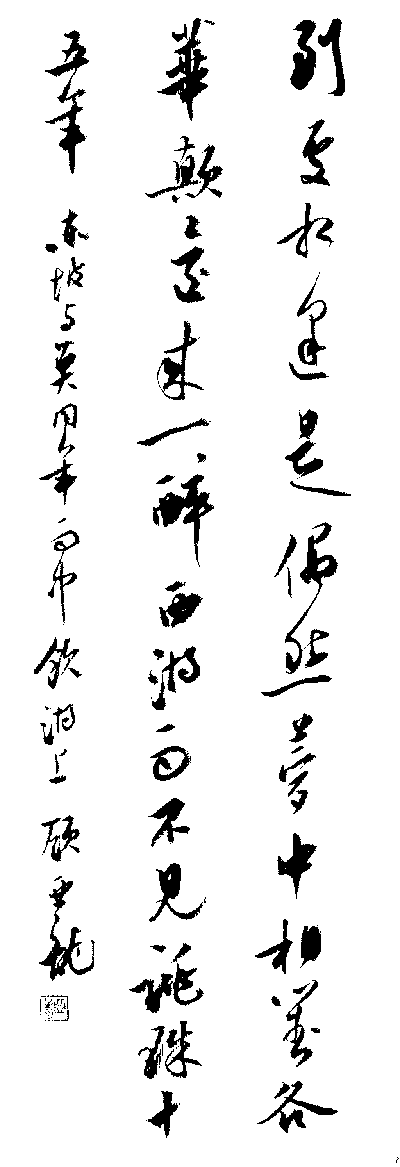 到處相逢是偶然夢中相對各
華顛還來一醉西湖雨不見跳珠十
五年 東坡与莫同年雨中飲湖上 顧亞龍